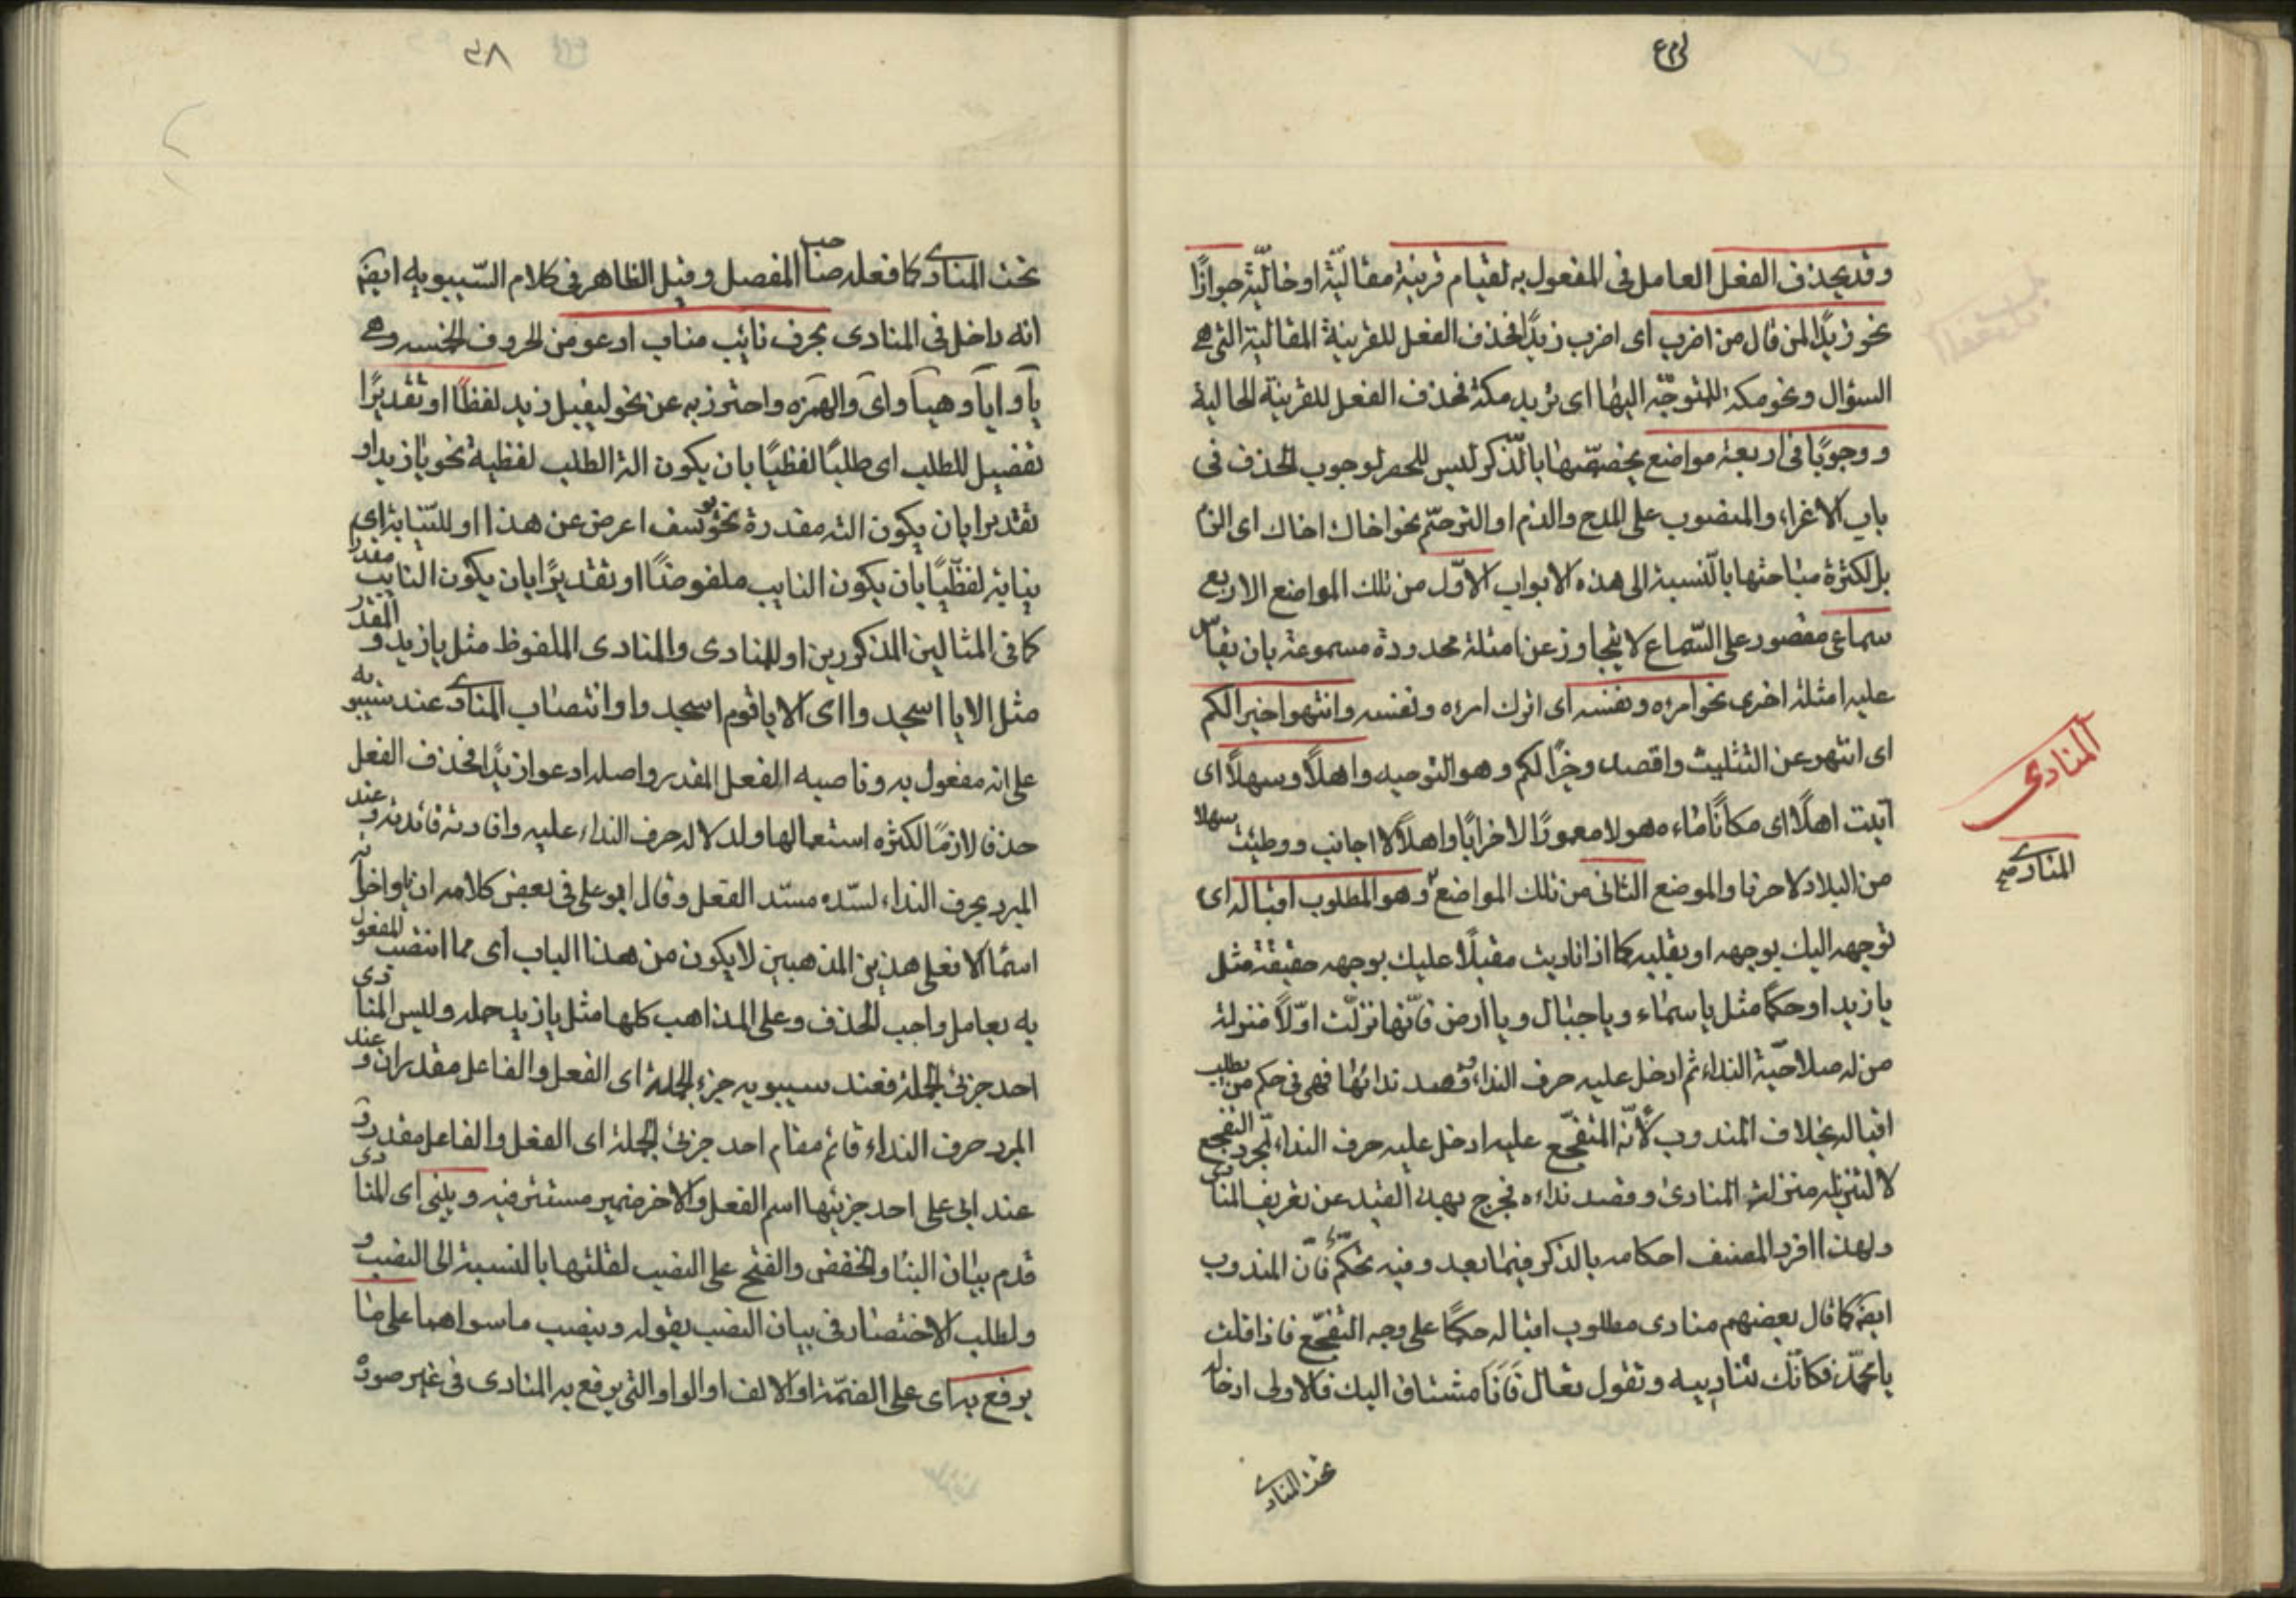 وقد يحذف الفعل العامل فى المفعول به لقيام قرينة مقاليّة او حاليّة جوازًا
نحو زيدًا لمن قال من اضرب اى اضرب زيدًا فحذف الفعل للقرينة المقالية التى هى
السؤال ونحو مكة للمتوجّه اليها اى تريد مكة فحذف الفعل للقرينة الحالية
ووجوبًا فى اربعة مواضع تخصيصها بالذّكر ليس للحصر لوجوب الحذف فى
باب الاغراء والمنصوب على المدح والذم او الترحّم نحو اخاك اخاك اى الزم
بل لكثرة مباحثها بالنّسبة الى هذه الابواب الاوّل من تلك المواضع الاربع
سماعى مقصور على السّماع لا يتجاوز عن امثلة محدودة مسموعة بان يقاس
عليه امثلة اخرى نحو امرءه ونفسه اى اترك امرءه ونفسه وانتهوا خيرا لكم
اى انتهو عن التثليث واقصدو خيرًا لكم وهو التوحيد واهلاً وسهلاً اى
اتيت اهلًا اى مكانًا ماءهولا معمورًا لا خرابًا واهلاً لا اجانب ووطئت سهلا
من البلاد لا حزنا والموضع الثانى من تلك المواضع وهو المطلوب اقباله اى
توجهه اليك بوجهه او بقلبه كما اذا ناديت مقبلًا عليك بوجهه حقيقة مثل
يا زيد او حكمًا مثل يا سماء ويا جبال ويا ارض فانّها نزلت اوّلاً منزلة
من له صلاحيّة النداء ثم ادخل عليه حرف النداء وقصد ندائها فهى فى حكم من يطلب
اقباله بخلاف المندوب لأنّه المتفجّع عليه ادخل عليه حرف النداء لمجرد التفجع
لا لتنزيله منزلة المنادى وقصد نداءه فخرج بهذا القيد عن تعريف المنادى
ولهذا افرد المصنف احكامه بالذكر فيما بعد وفيه تحكّم فانّ المندوب
ايضًا كما قال بعضهم منادى مطلوب اقباله حكمًا على وجه التفجّع فاذا قلت
يا محمّد فكأنّك تناديه وتقول تعال فانا مشتاق اليك فالاولى ادخاله
تحت المنادى
المنادى
المنادى صح
٢٨
تحت المنادى كما فعله صاحب المفصل وقيل الظاهر فى كلام السّيبويه ايضًا
انه داخل فى المنادى بحرف نائب مناب ادعو من الحروف الخمسه وهى
يا وايا وهيا واى والهمزه واحترز به عن نحو ليقبل زيد لفظًا او تقديرًا
تفصيل للطلب اى طلبًا لفظيًا بان يكون الة الطلب لفظية نحو يا زيد او
تقديرا بان يكون الته مقدرة نحو يوسف اعرض عن هذا او للنّيابة اى
نيابة لفظيًا بان يكون النايب ملفوظًا او تقديرًا بان يكون النايب مقدرا
كما فى المثالين المذكورين او للمنادى والمنادى الملفوظ مثل يا زيد والمقدر
مثل الا يا اسجدوا اى الا يا قوم اسجدوا وانتصاب المنادى عند سيبويه
على انه مفعول به وناصبه الفعل المقدر واصله ادعو ازيدًا فحذف الفعل
حذفا لازمًا لكثرة استعمالها ولدلالة حرف النداء عليه وافادته فائدته وعند
المبرد بحرف النداء لسدّه مسدّ الفعل وقال ابو على فى بعض كلامه ان يا واخواته
اسماء الافعل هذين المذهبين لا يكون من هذا الباب اى مما انتصب المفعول
به بعامل واجب الحذف وعلى المذاهب كلها مثل يا زيد جمله وليس المنادى
احد جزئى الجملة فعند سيبويه جزء الجملة اى الفعل والفاعل مقدران وعند
المبرد حرف النداء قائم مقام احد جزئى الجملة اى الفعل والفاعل مقدر و
عند ابى على احد جزئيها اسم الفعل والاخر ضمير مستتر فيه ويبنى اى المنادى
قدم بيان البناء والخفض والفتح على النصب لقلتها بالنسبة الى النصب و
ولطلب الاختصار فى بيان النصب بقوله وينصب ما سواهما على ما
يرفع به اى على الضمّة او الالف او الواو التى يرفع به المنادى فى غير صورة